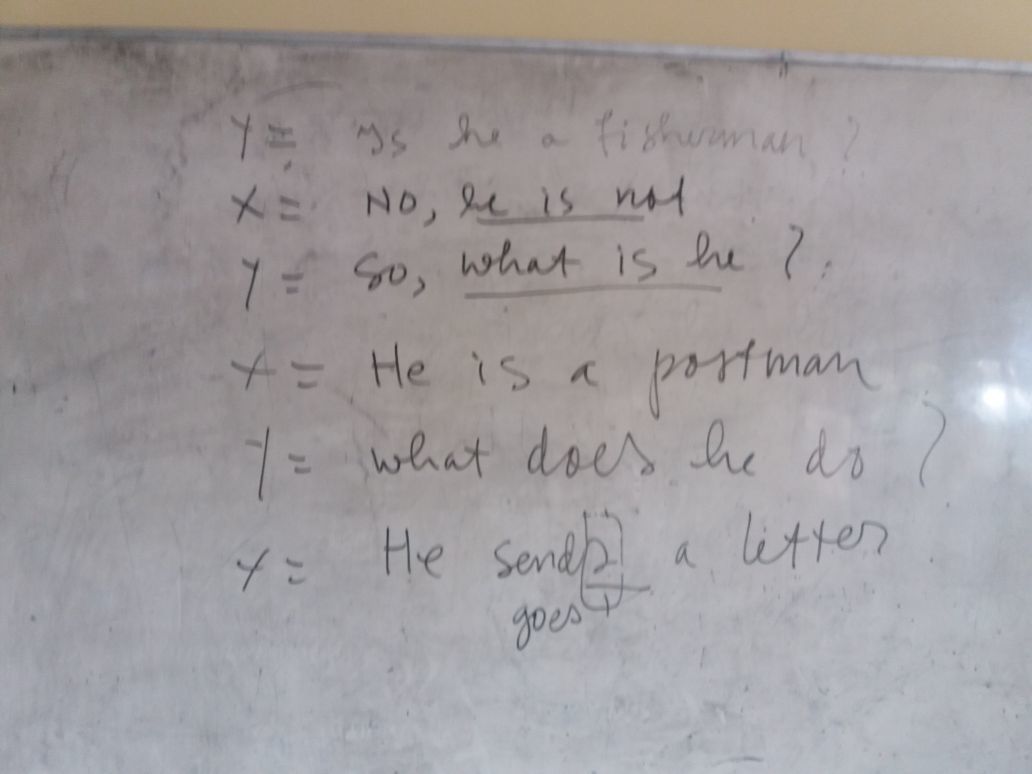 Y = Is he a fisherman ?
X = NO, he is not
Y = So, what is he ?
X = He is a postman
Y = what does he do ?
X = He sends a letter
goes